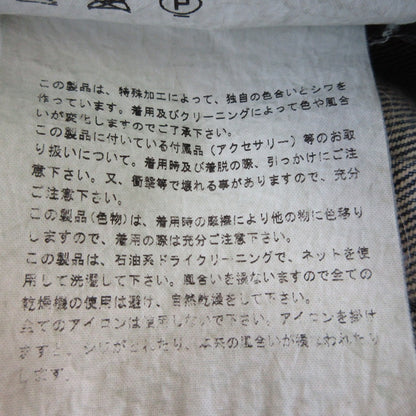 P
この製品は、特殊加工によって、独自の色合いとシワを
作っています。着用及びクリーニングによって色や風合
いが変化しますのでご了承下さい。
この製品に付いている付属品（アクセサリー）等のお取
り扱いについて。着用時及び着脱の際、引っかけにご注
意下さい。又、衝撃等で壊れる事がありますので、充分
ご注意下さい。
この製品(色物)は、着用時の摩擦により他の物に色移り
しますので、着用の際は充分ご注意下さい。
この製品は、石油系ドライクリーニングで、ネットを使
用して洗濯して下さい。風合いを損ないますので全ての
乾燥機の使用は避け、自然乾燥をして下さい。
全てのアイロンは使用しないで下さい。アイロンを掛け
ますと、シワがとれたり、本来の風合いが損なわれたり
します。